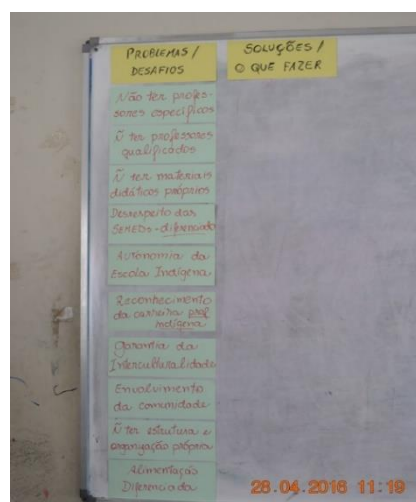 PROBLEMAS /
DESAFIOS
SOLUÇÕES /
O QUE FAZER
Não ter profes-
sores específicos
Ñ ter professores
qualificados
Ñ ter materiais
didáticos próprios
Desrespeito das
SEMEDs - diferenciado
Autonomia da
Escola Indígena
Reconhecimento
da carreira prof
indígena
Garantia da
Interculturalidade
Envolvimento
da comunidade
Ñ ter estrutura e
organização própria
Alimentação
Diferenciada
28.04.2016 11:19